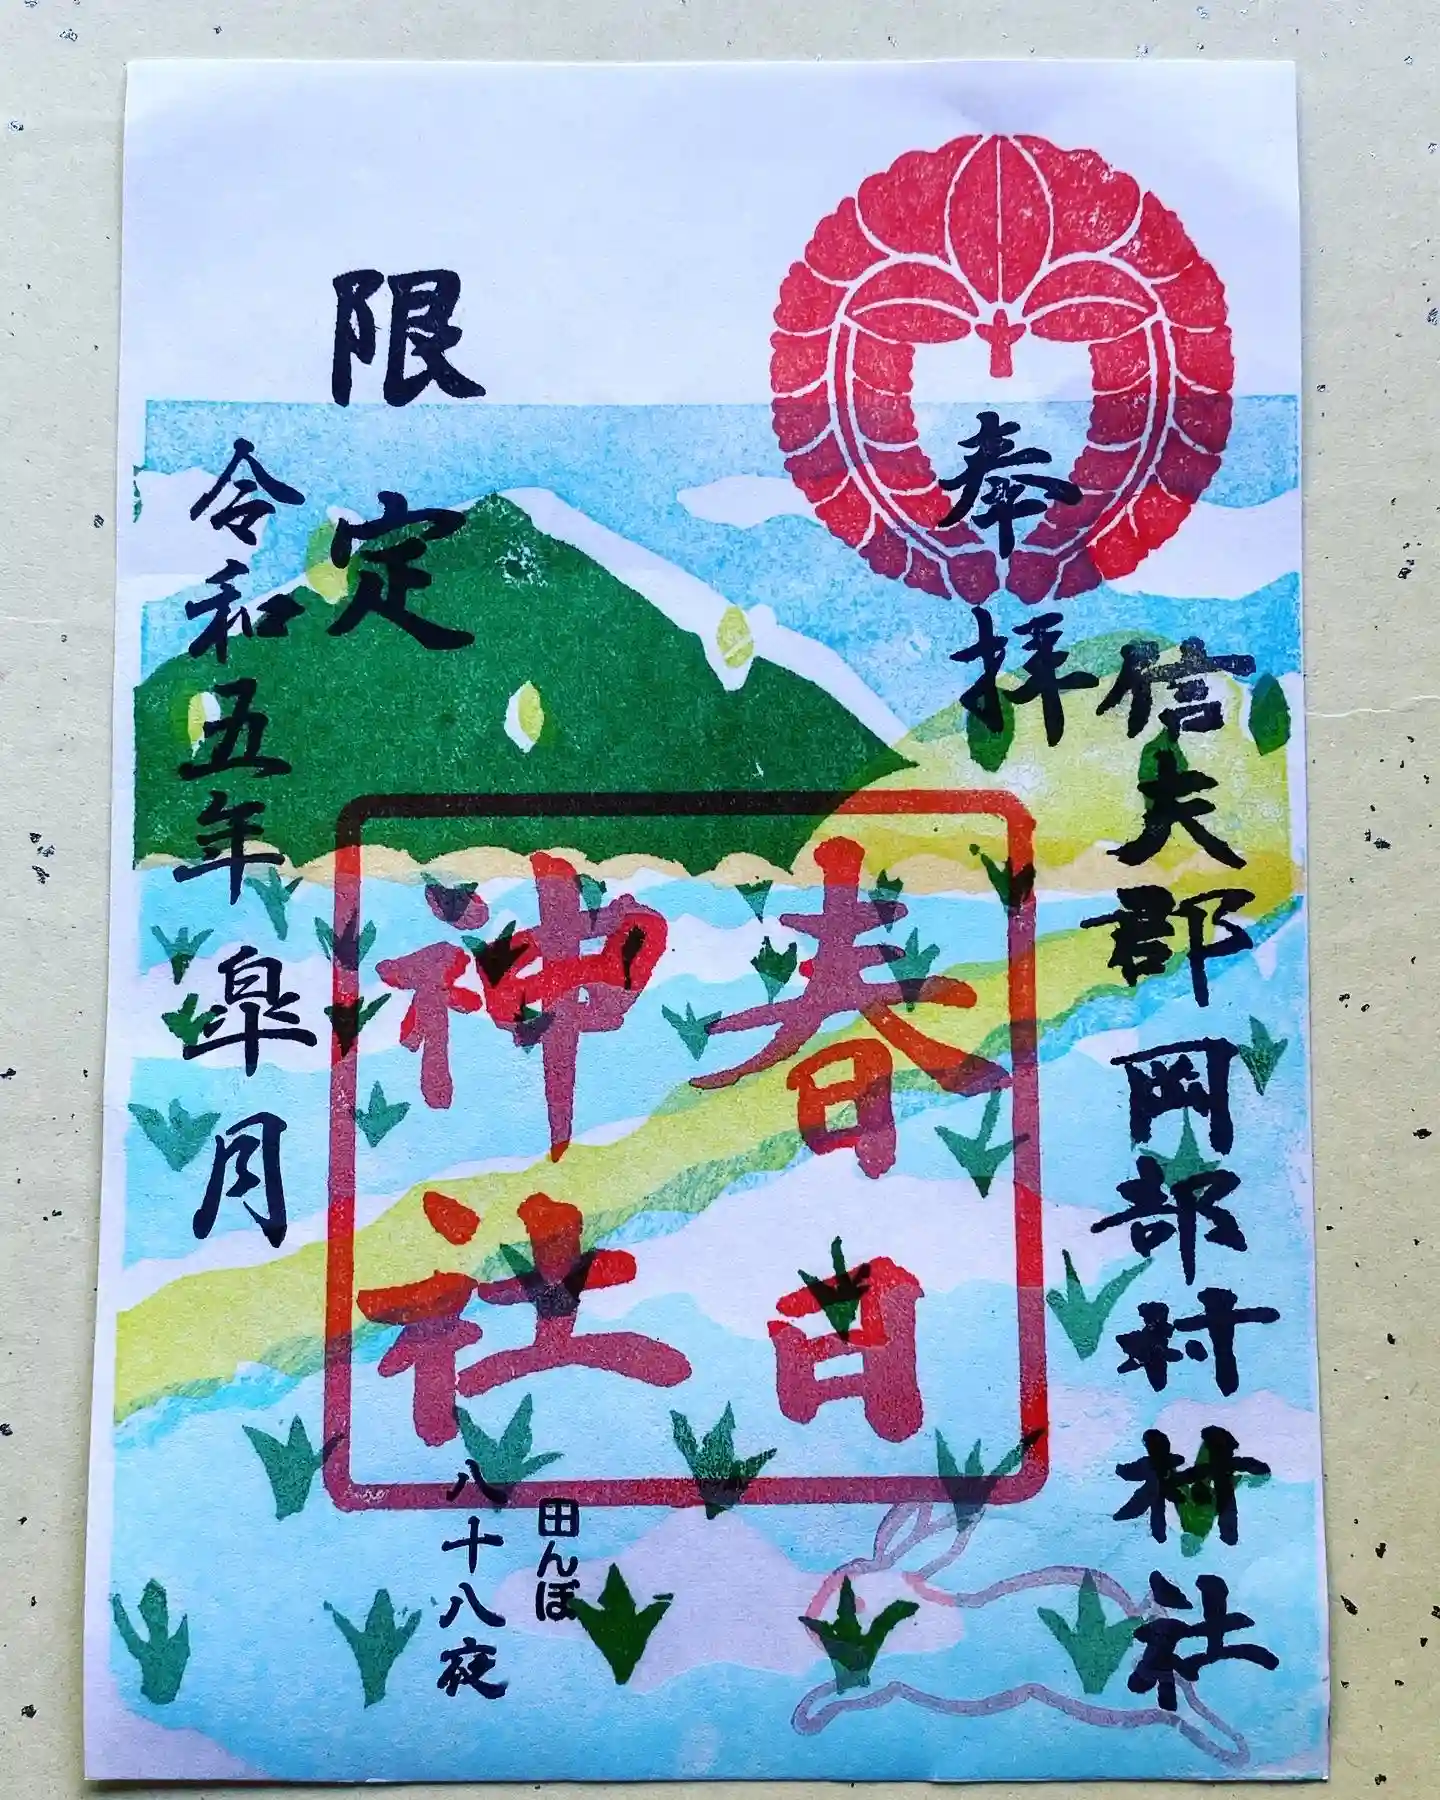 奉拝
信夫郡岡部村村社
春日
神社
限定
令和五年皐月
田んぼ
八十八夜